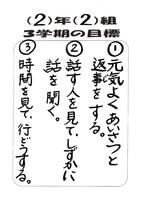 (2)年(2)組
3学期の目標
①元気よくあいさつと
返事をする。
②話す人を見て、しずかに
話を聞く。
③時間を見て、行どうする。